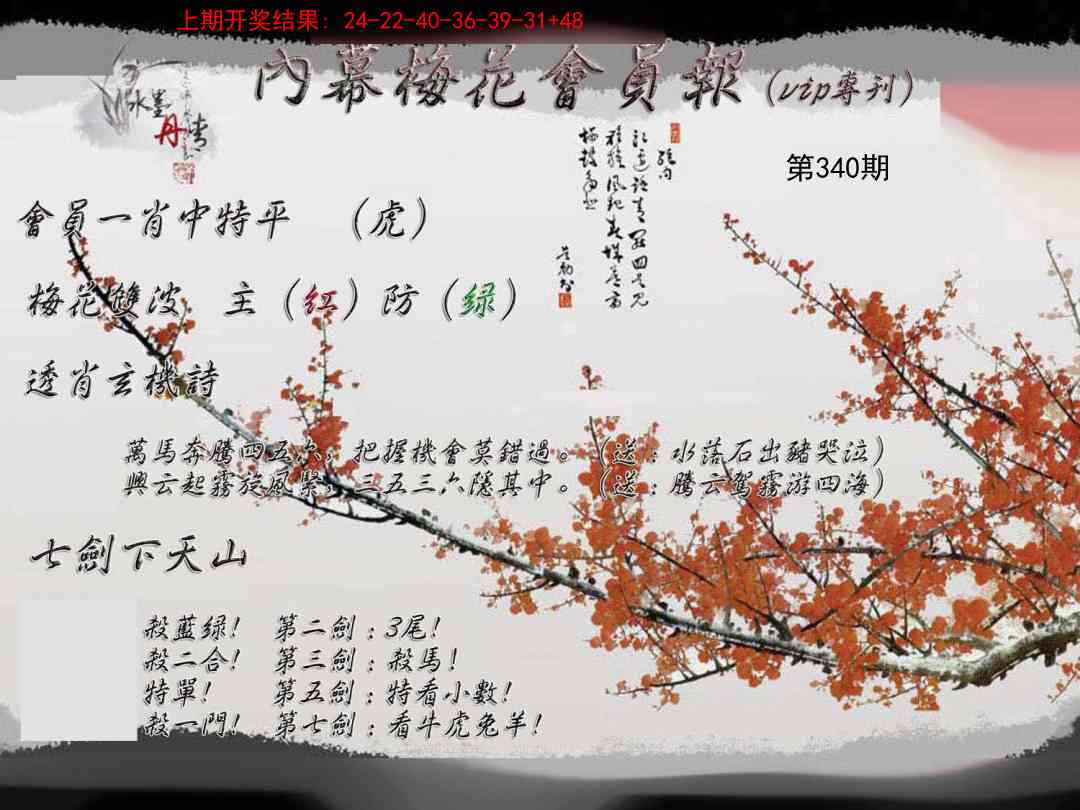 上期开奖结果: 24-22-40-36-39-31+48
內幕梅花會員報(vip專刊)
水墨
丹青
第340期
會員一肖中特平 (虎)
梅花雙波 主(红)防(绿)
透肖玄機詩
萬馬奔騰四五六，把握機會莫錯過。(送:水落石出豬哭泣)
興云起霧旋風緊，三五三六隱其中。(送:騰云駕霧游四海)
七劍下天山
殺藍绿! 第二劍:3尾!
殺二合! 第三劍:殺馬!
特單! 第五劍:特看小數!
殺一門! 第七劍:看牛虎兔羊!